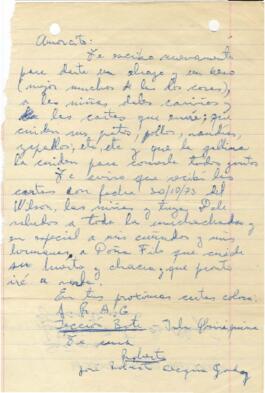 Amorcito:
Te escribo nuevamente
para darte un abrazo y un beso
(mejor muchos de las dos cosas)
a las niñas dales cariños y
las cartas que envié; que
cuiden sus gatos, pollos,
repollos, etc, etc y que la gallina
la cuiden para comerla todos juntos
Te aviso que recibí las
cartas con fecha 20/10/73 del
Wilson, las niñas y tuya. Dale
saludos a toda la
en especial a mis cuñados y mis
hermanos a Doña Filo que cuide
su huerta y chacra, que pronto
iré a
En tus próximas cartas coloca:
A. R. A. C
Sección Bote Isla Quiriquina
Te ama
Roberto
José Roberto